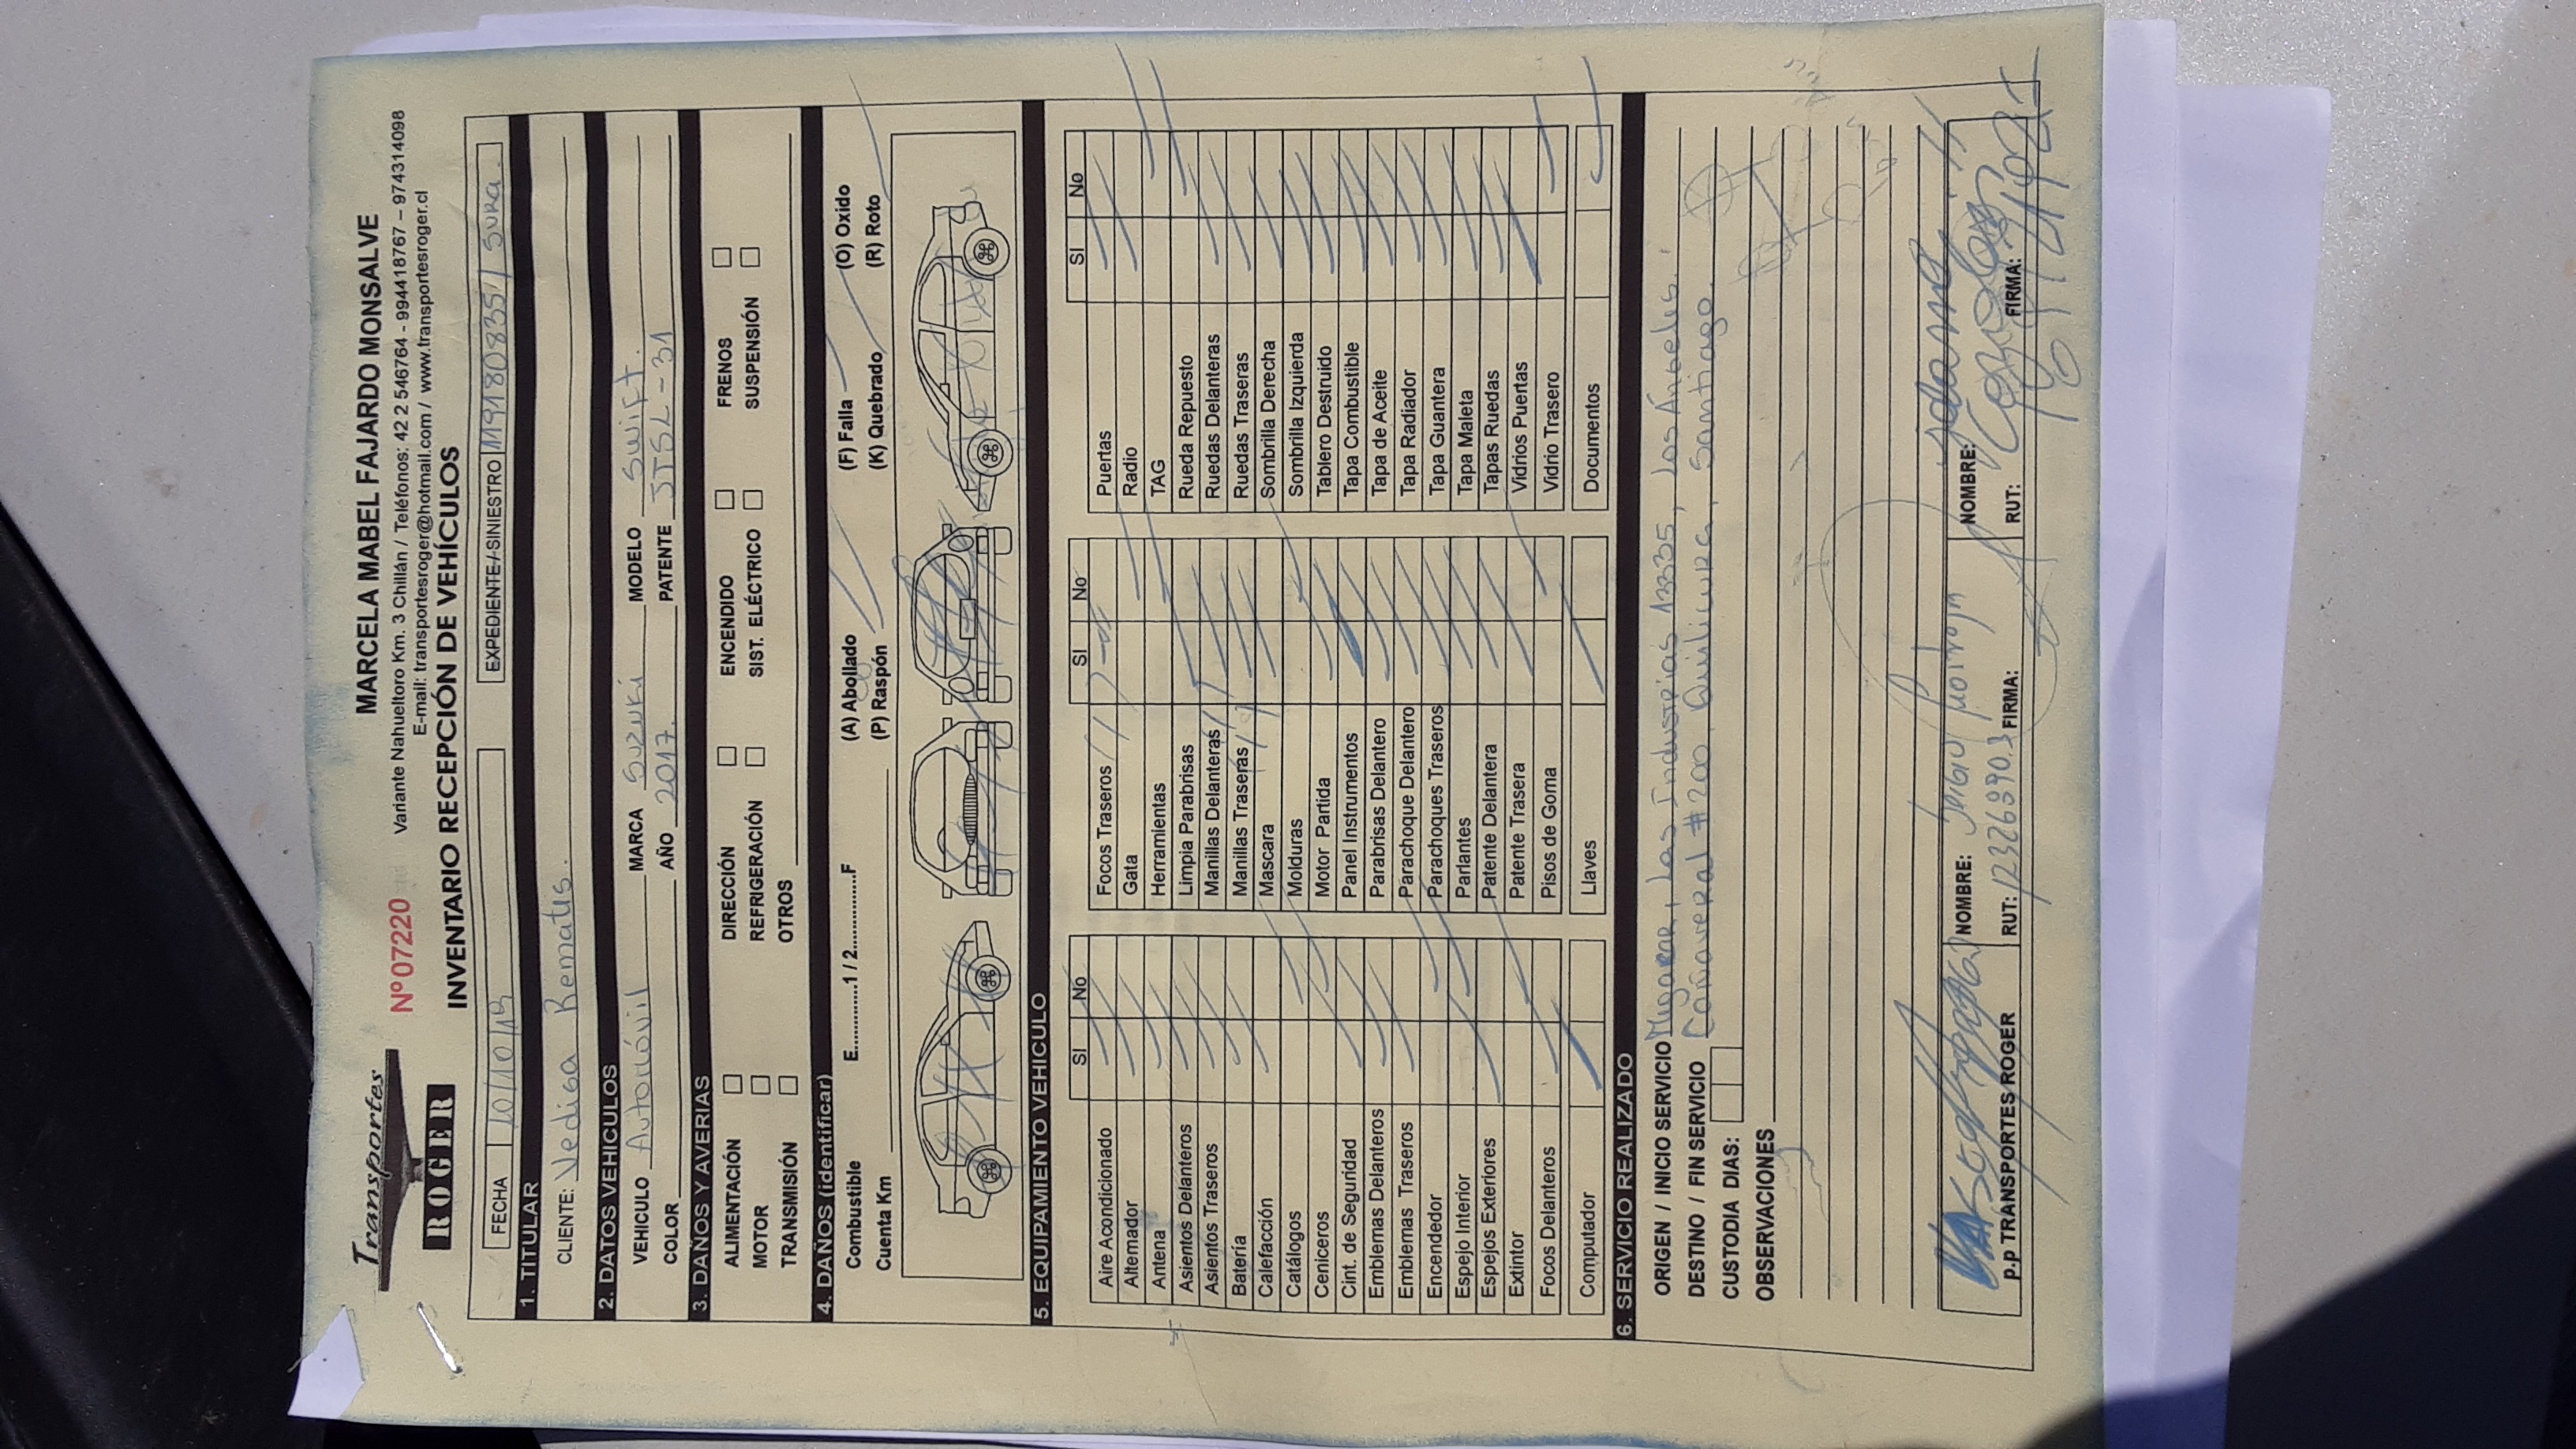 Transportes
ROGER
MARCELA MABEL FAJARDO MONSALVE
Nº 07220 Variante Nahueltoro Km. 3 Chillán / Teléfonos: 42 2 546764 - 994418767 – 974314098
E-mail: transportesroger@hotmail.com / www.transportesroger.cl
INVENTARIO RECEPCIÓN DE VEHÍCULOS
FECHA 10/10/19 EXPEDIENTE/SINIESTRO / Sura
1. TITULAR
CLIENTE: Vedisa Remates.
2. DATOS VEHICULOS
VEHICULO Automóvil MARCA Suzuki MODELO Swift.
COLOR AÑO 2017. PATENTE JTSL-31
3. DAÑOS Y AVERIAS
ALIMENTACIÓN DIRECCIÓN ENCENDIDO FRENOS
MOTOR REFRIGERACIÓN SIST. ELÉCTRICO SUSPENSIÓN
TRANSMISIÓN OTROS
4. DAÑOS (identificar)
Combustible E............1 / 2............F (A) Abollado (F) Falla (O) Oxido
Cuenta Km (P) Raspón (K) Quebrado (R) Roto
5. EQUIPAMIENTO VEHICULO
SI No SI No SI No
Aire Acondicionado Focos Traseros Puertas
Alternador Gata Radio
Antena Herramientas TAG
Asientos Delanteros Limpia Parabrisas Rueda Repuesto
Asientos Traseros Manillas Delanteras Ruedas Delanteras
Batería Manillas Traseras Ruedas Traseras
Calefacción Mascara Sombrilla Derecha
Catálogos Molduras Sombrilla Izquierda
Ceniceros Motor Partida Tablero Destruido
Cint. de Seguridad Panel Instrumentos Tapa Combustible
Emblemas Delanteros Parabrisas Delantero Tapa de Aceite
Emblemas Traseros Parachoque Delantero Tapa Radiador
Encendedor Parachoques Traseros Tapa Guantera
Espejo Interior Parlantes Tapa Maleta
Espejos Exteriores Patente Delantera Tapas Ruedas
Extintor Patente Trasera Vidrios Puertas
Focos Delanteros Pisos de Goma Vidrio Trasero
Computador Llaves Documentos
6. SERVICIO REALIZADO
ORIGEN / INICIO SERVICIO Megacar, Las Industrias 13335, Los Ángeles.
DESTINO / FIN SERVICIO Cañaveral #200, Quilicura, Santiago.
CUSTODIA DIAS:
OBSERVACIONES
NOMBRE: Sergio NOMBRE:
p.p TRANSPORTES ROGER RUT: FIRMA: RUT: FIRMA: